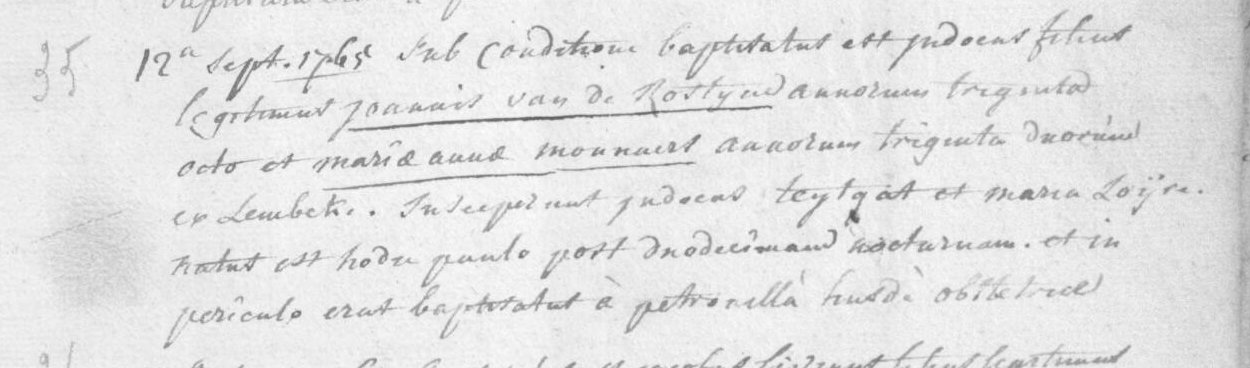 35 12a Sept. 1765 Sub Conditione baptisatus est judocus filius
legitimus joannis van de Rostyne annorum triginta
octo et mariæ annæ monnaert annorum triginta duorum
ex Lembeke. Susceperunt judocus teytgat et maria Loÿse.
natus est hodie paulo post duodecimam nocturnam. et in
periculo erat baptisatus à petronillâ husdè obstetrice
filius legitimus